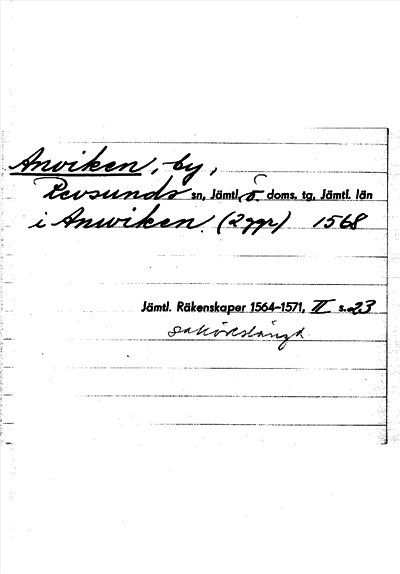 Anviken, by,
Revsunds sn, Jämtl. ö. doms. tg, Jämtl. län
i Anwiken. (2 ggr) 1568
Jämtl. Räkenskaper 1564–1571, II s. 23
saköreslängd